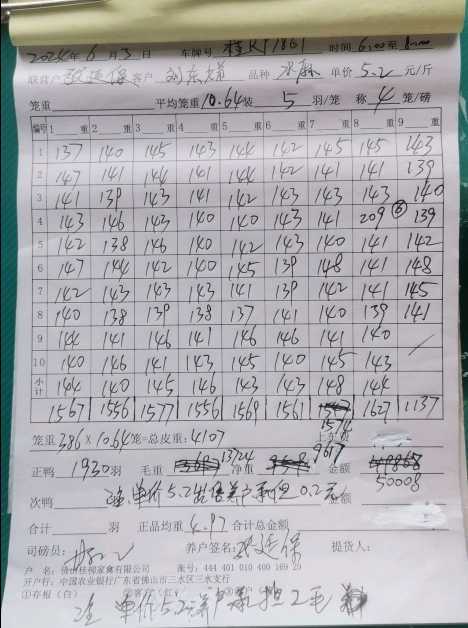 2024年6月3日 车牌号 桂KJ1861 时间 6:00至8:00
联营户 客户 刘东 品种 水麻 单价5.2元/斤
笼重 平均笼重10.64装 5 羽/笼 称 4 笼/磅
编号 1 重 2 重 3 重 4 重 5 重 6 重 7 重 8 重 9 重
1 137 140 145 143 144 142 145 145 143
2 147 141 144 141 144 142 141 141 139
3 141 139 143 141 142 143 143 143 140
4 143 146 143 140 140 143 141 209 ⑥ 139
5 142 138 146 140 142 143 140 141 142
6 147 144 142 140 145 139 148 141 148
7 142 143 143 143 141 139 142 141 145
8 140 138 139 138 137 141 140 139 141
9 144 141 146 141 146 146 141 140
10 140 146 141 143 145 140 145 143
小计 144 140 145 146 143 143 148 144
1567 1556 1577 1556 1569 1561 1574 1627 1137
笼重386×10.64笼=总皮重:4107 上车费
正鸭 1930羽 毛重 13724 净重 9617 金额 50008
次鸭 金额
合计 羽 正品均重 4.97 合计总金额
司磅员: 养户签名: 提货人:
户 名:佛山桂柳家禽有限公司 账号:444 401 010 400 169 29
开户行:中国农业银行广东省佛山市三水区三水支行
①存根(白)